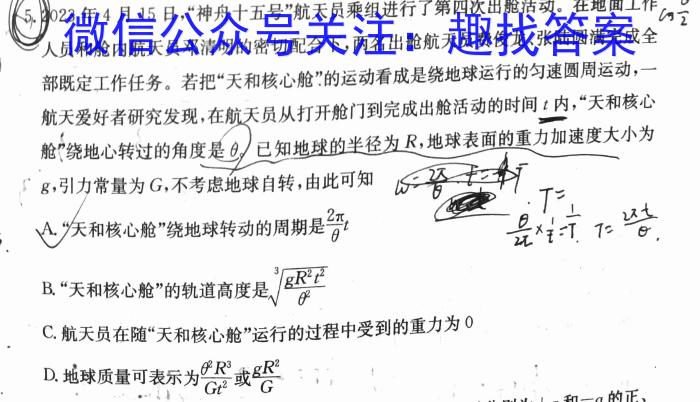 5.2023年4月15日,“神舟十五号”航天员乘组进行了第四次出舱活动。在地面工作
微信公众号关注：趣找答案
人员和舱内航天员邓清明的密切配合下,两名出舱航天员费俊龙、张陆圆满完成全
部既定工作任务。若把“天和核心舱”的运动看成是绕地球运行的匀速圆周运动,一
航天爱好者研究发现,在航天员从打开舱门到完成出舱活动的时间 t 内,“天和核心
舱”绕地心转过的角度是 θ。已知地球的半径为 R,地球表面的重力加速度大小为
g,引力常量为 G,不考虑地球自转,由此可知
T=
θ/2π × 1/t = 1/T T = 2πt/θ.
A.“天和核心舱”绕地球转动的周期是 2π/θ t
B.“天和核心舱”的轨道高度是 ∛(gR²t²/θ²)
C. 航天员在随“天和核心舱”运行的过程中受到的重力为 0
D. 地球质量可表示为 θ²R³/Gt² 或 gR²/G
和-q的正、